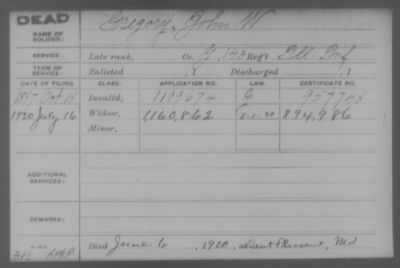 DEAD
NAME OF SOLDIER: Gregory, John W
SERVICE: Late rank, Co. G, 142 Reg't Ill Inf
TERM OF SERVICE: Enlisted , 1 Discharged , 1
DATE OF FILING. CLASS. APPLICATION NO. LAW. CERTIFICATE NO.
Invalid, 1199674
1920 July 16 Widow, 1,160,862 894,986
Minor,
ADDITIONAL SERVICES:
REMARKS:
Died June 6, 1920, Pleasant, Md.